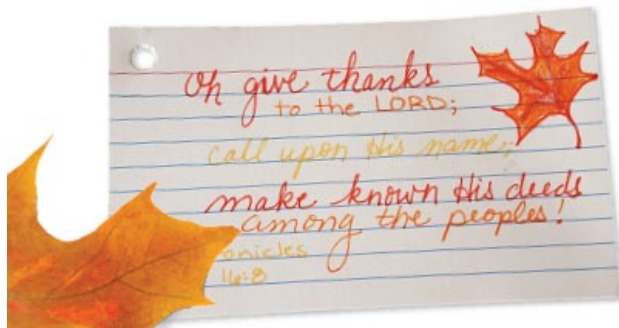 Oh give thanks
to the LORD;
call upon His name;
make known His deeds
among the peoples!
onicles
16:8